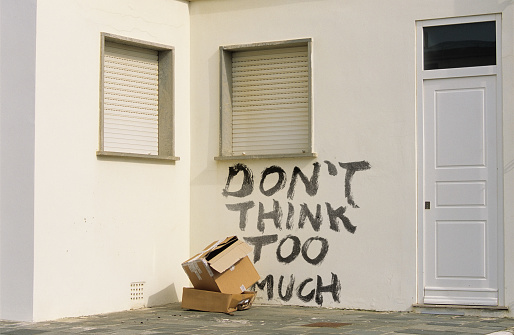 DON'T
THINK
TOO
MUCH